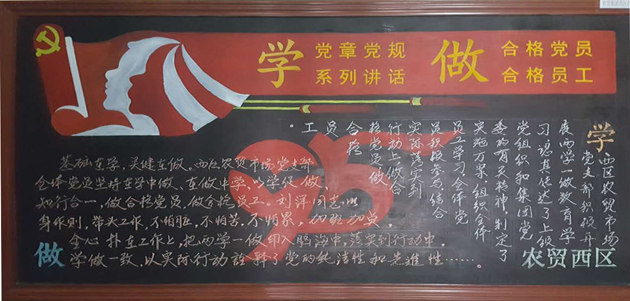 学 党章党规 做 合格党员
系列讲话 合格员工
学 西区农贸市场
党支部积极开
展两学一做教育学
习,认真传达了上级
党组织和集团党
委的有关精神,制定了
实施方案,组织全体
员工学习,全体党
员积极参与,结合
实际,落实到
行动上,做合
格党员,做
合格
员工。
基础在学,关键在做。西区农贸市场党支部
全体党员坚持在学中做、在做中学,以学促做,
知行合一,做合格党员、做合格员工。刘洋同志以
身作则,带头工作,不怕脏,不怕苦,不怕累,加班加点,
全心扑在工作上,把两学一做印入脑海中,落实到行动中。
做 学做一致,以实际行动诠释了党的纯洁性和先进性……。
农贸西区